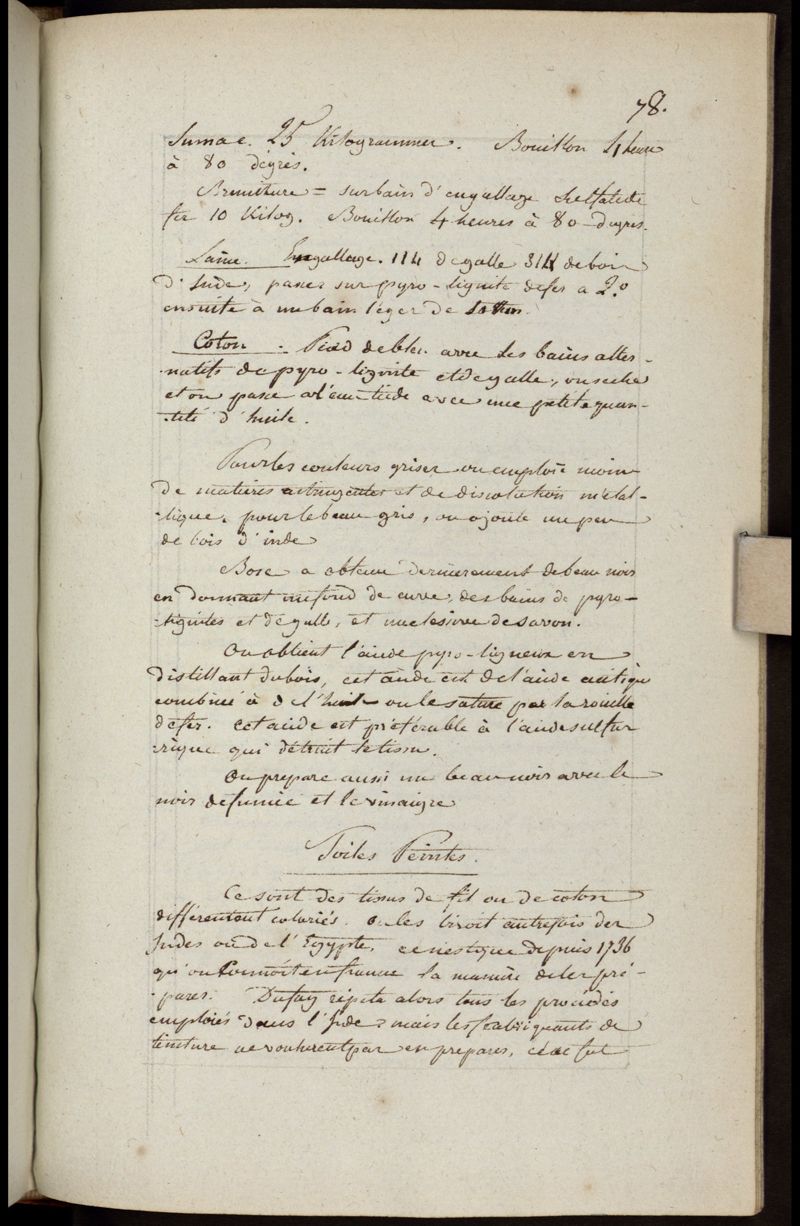 78.
Sumac. 25 Kilogrammes. Bouillon 4 heures
à 80 degrés.
Bruniture = sur bain d'engallage Sulfate de
fer 10 Kilog. Bouillon 4 heures à 80 degres.
Laine. Engallage. 1/4 de galle 3/4 de bois
d'Inde, passer sur pyro-lignite de fer a 2.°
ensuite à un bain léger de
Coton. Pied de bleu avec des bains alter-
natifs de pyro-lignite et de galle, on seche
et on passe a l'eau tiede avec une petite quan-
-tité d'huile.
Pour les couleurs grises on emploie moins
de matieres astringentes et de dissolution métal-
-lique, pour le beau gris, on ajoute un peu
de bois d'inde
Bosc a obtenu dernierement de beau noir
en donnant un fond de cuve, des bains de pyro-
-lignites et de galle, et une lessive de savon.
On obtient l'acide pyro-ligneux en
distillant du bois, cet acide est de l'acide acétique
combiné à de l'huile on le sature par la rouille
de fer. cet acide est préférable à l'acide sulfu
-rique qui détruit le tissu.
On prepare aussi un beau noir avec le
noir de fumée et le vinaigre
Toiles Peintes.
Ce sont des tissus de fil ou de coton
différemment coloriés. on les tiroit autrefois des
Indes ou de l'Egypte, ce n'est que depuis 1736
qu'on connoit en france la maniere de les pré-
-parer. Dufay répéta alors tous les procédés
emploiés dans l'Inde, mais les fabriquants de
teinture ne voulurent pas en preparer, ce ne fut